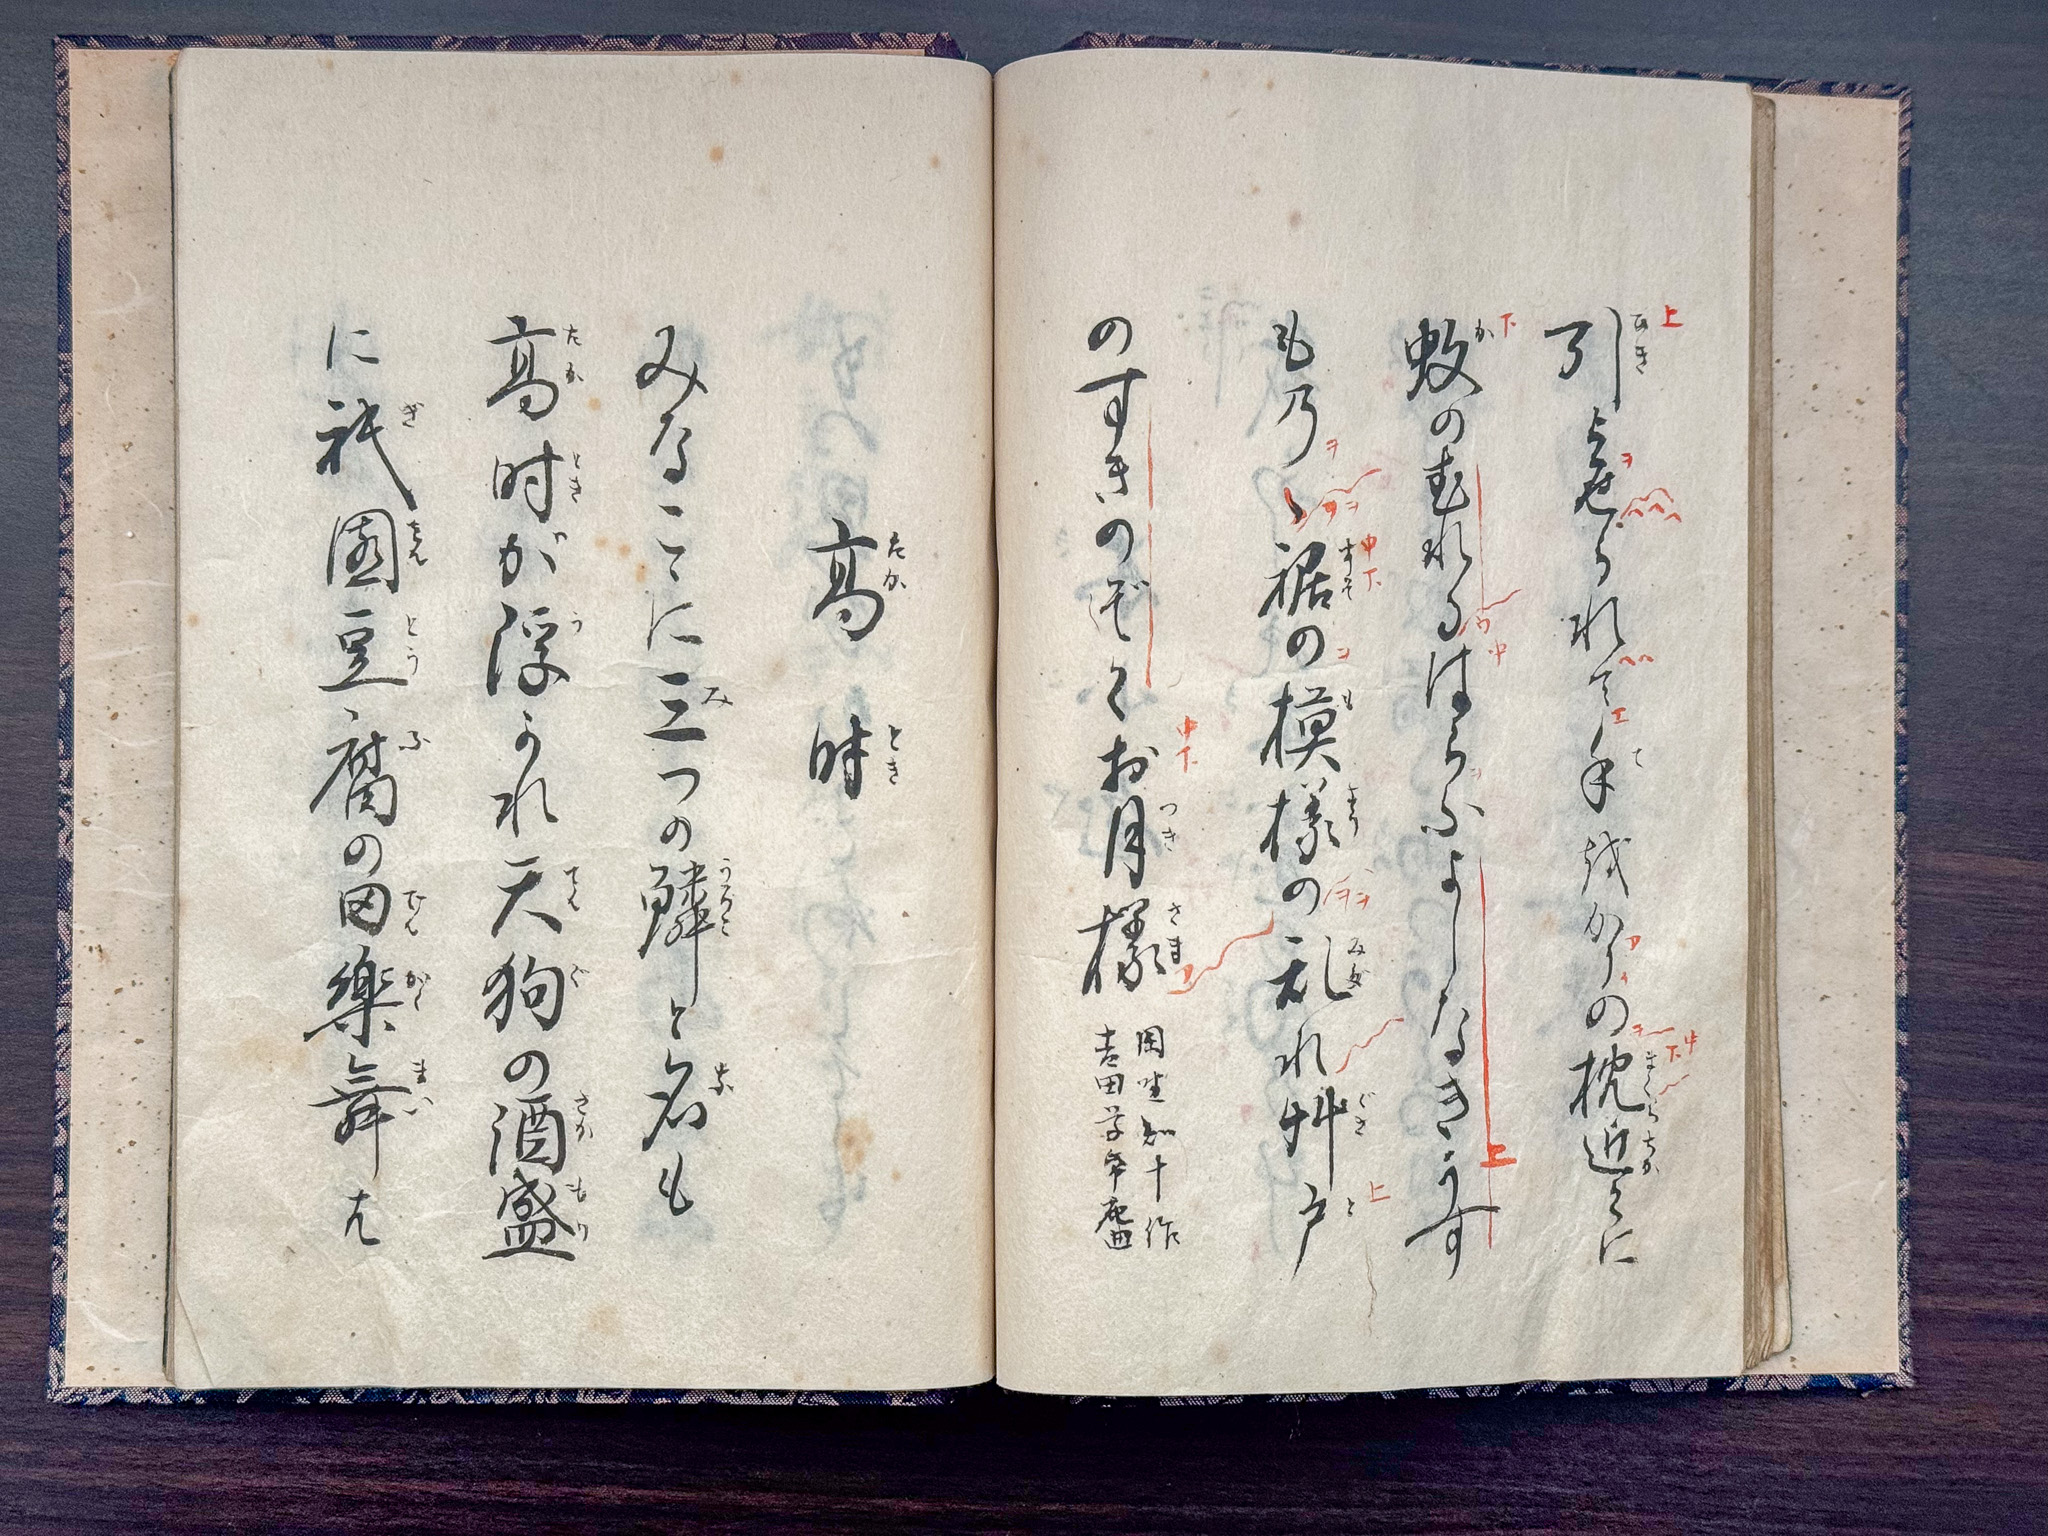 引よせられて手をかりの枕近くに
蚊のむれるはらふよしなきうす
もの丶裾の模様の乱れ艸戸
のすきのぞくお月様
吉田草命庵曲
高時
みなここに三つの鱗と名も
高時が浮かれ天狗の酒盛
に祇園豆腐の田楽舞は